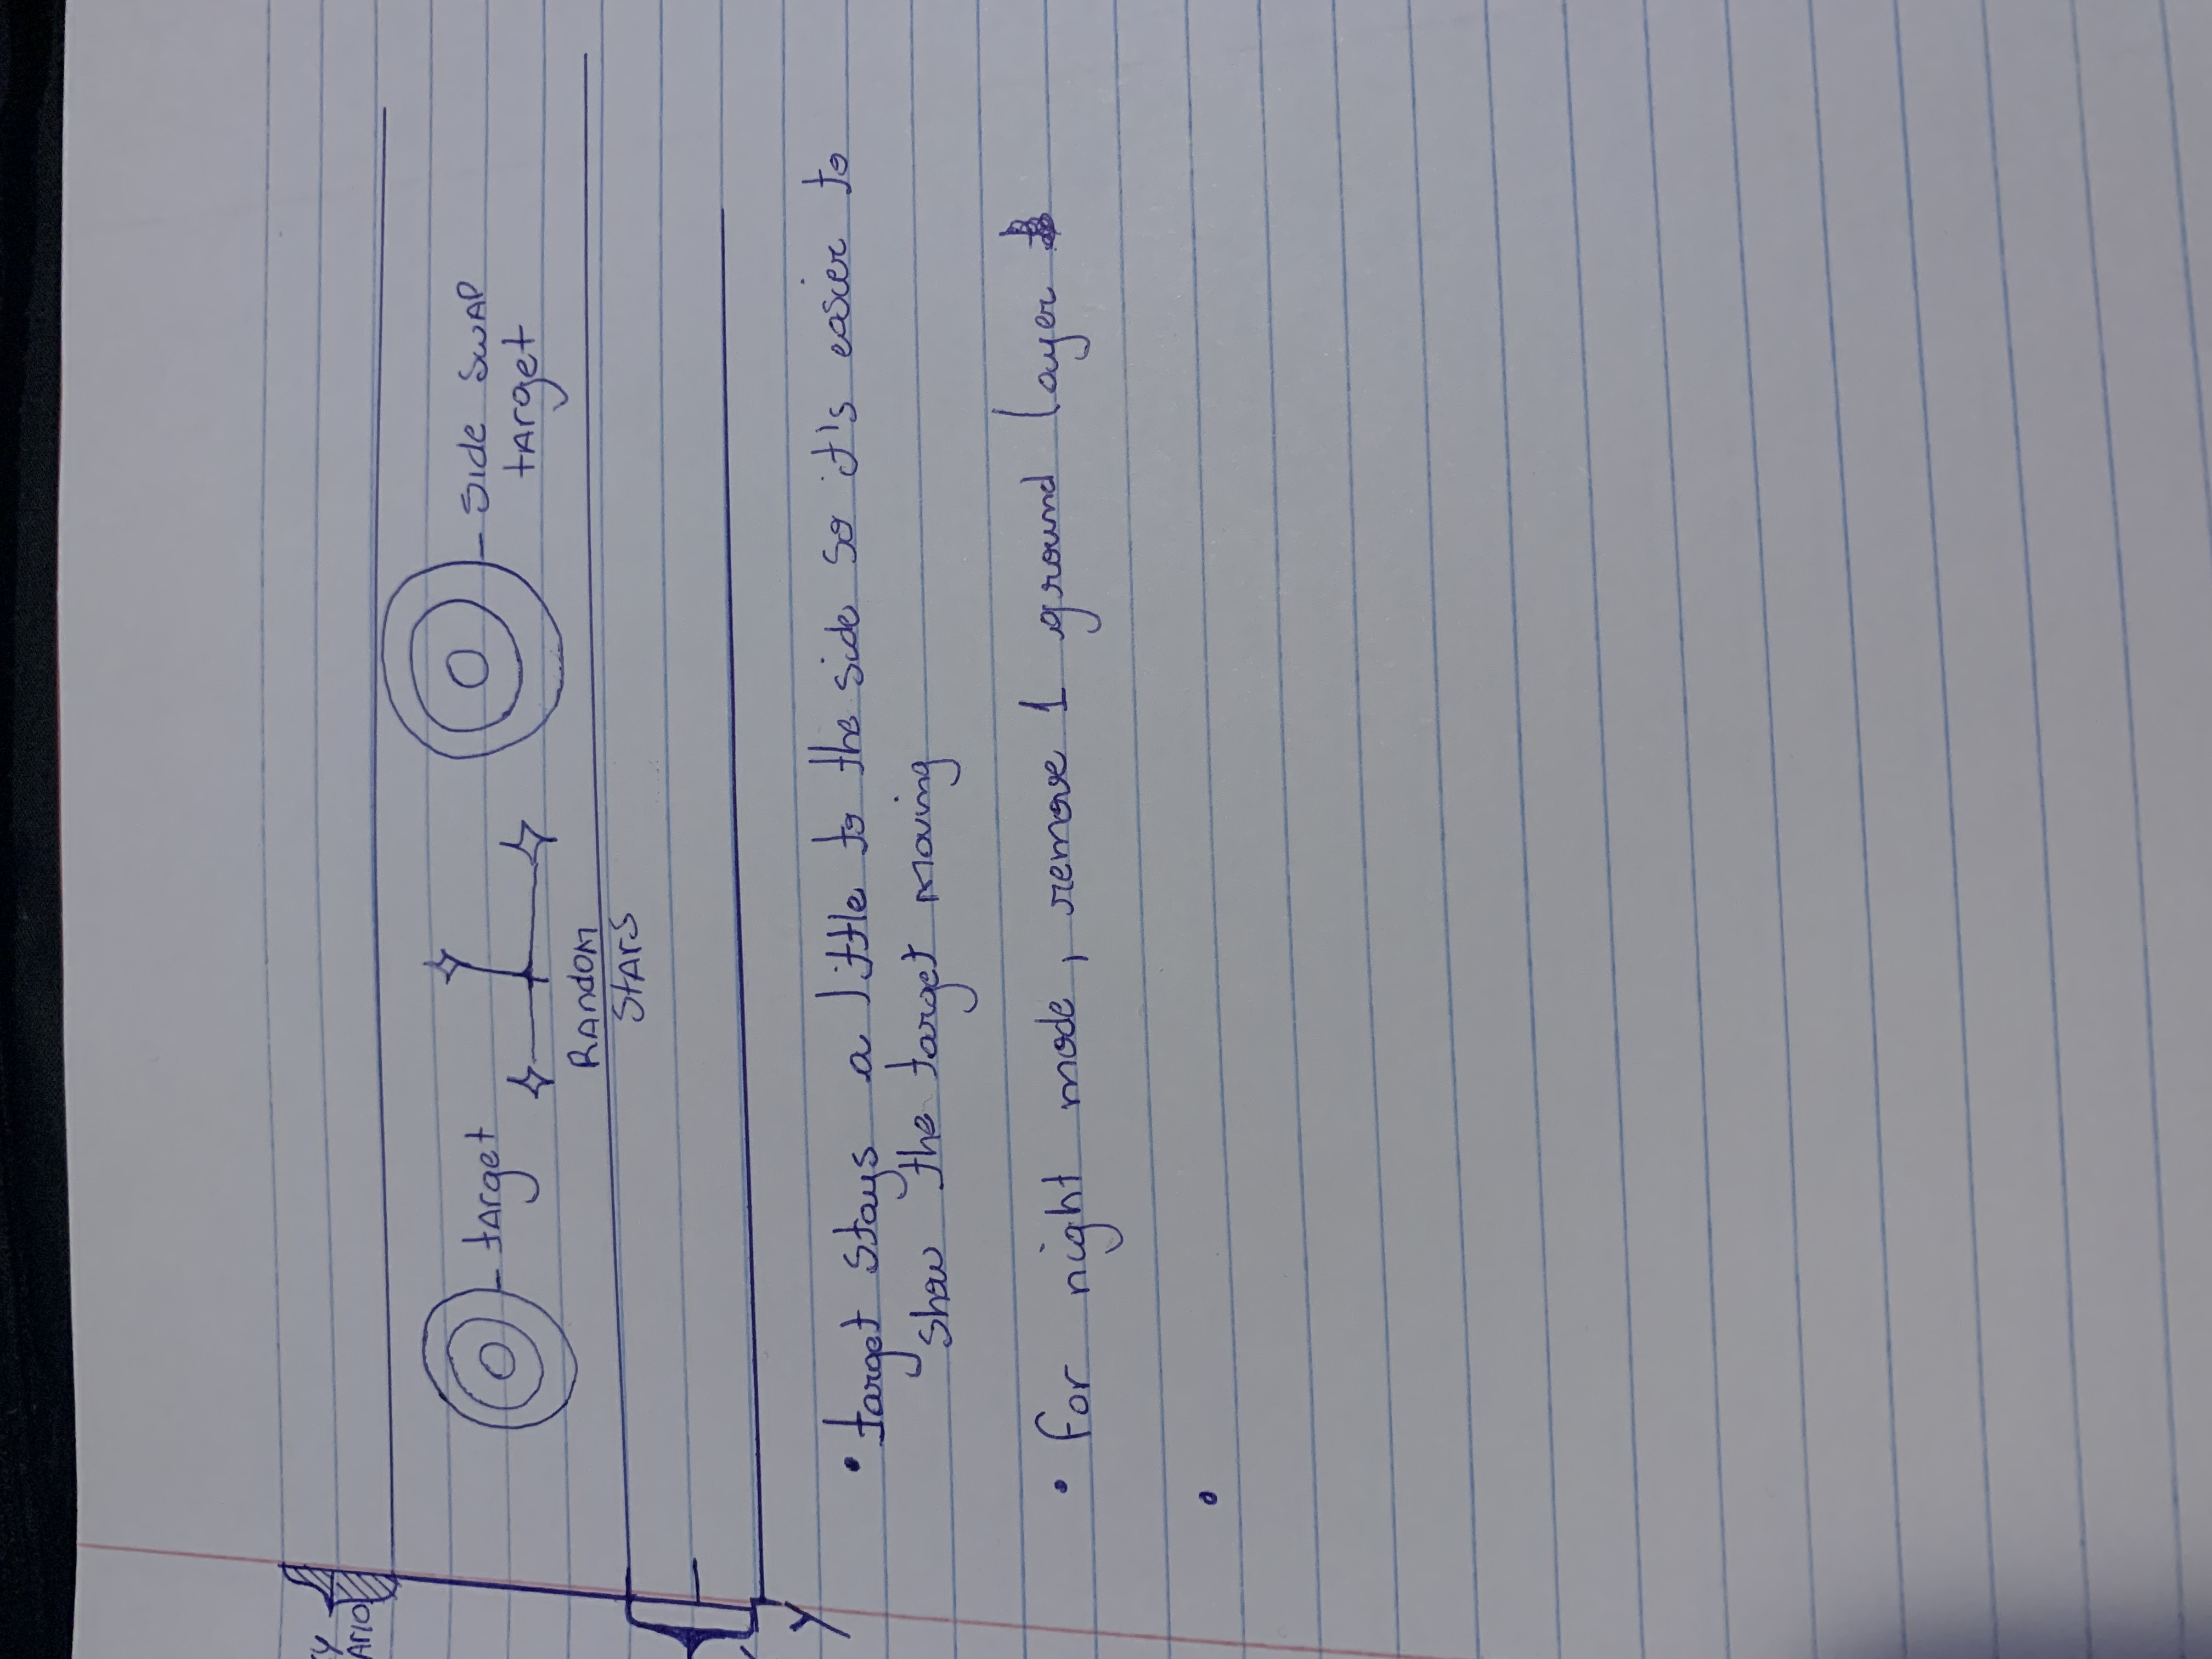 Y
ArIO
tArget
Side SWAP
tArget
RAndOM
StArS
Y
• target stays a little to the side so it's easier to
show the target moving
• for night mode, remove 1 ground layer
•